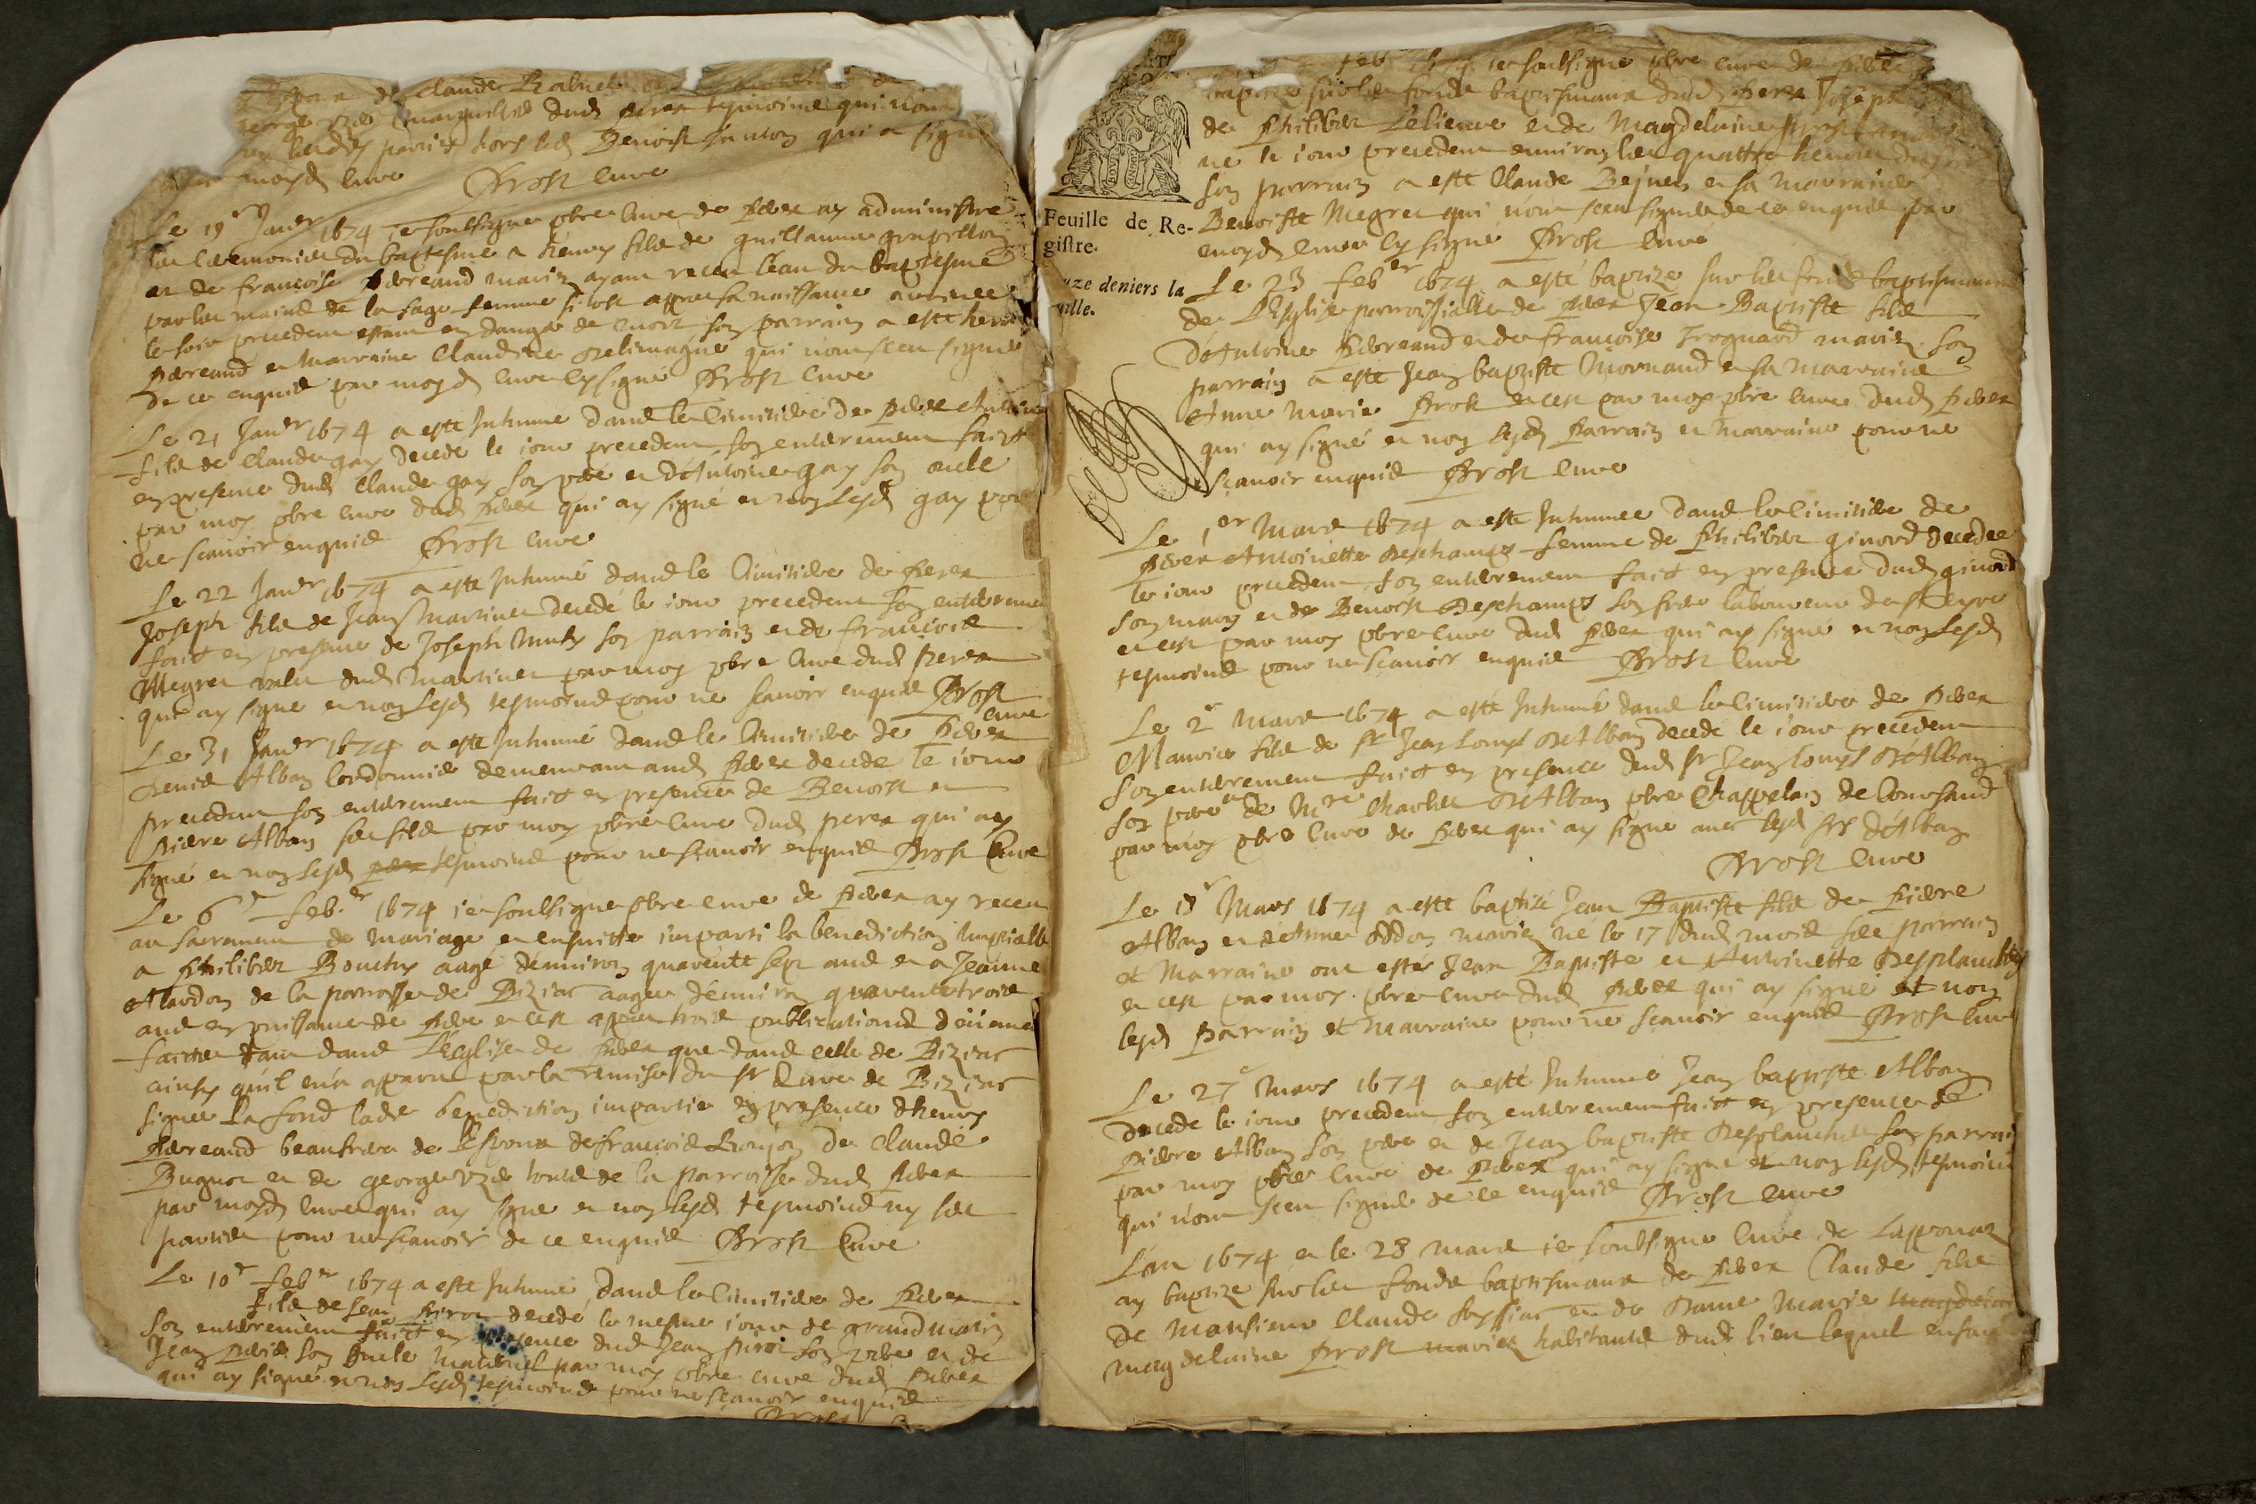 de Claude
marguillier dud perex tesmoins qui n'ont
parties hors led Benoist qui a signé
moyd curé Prost curé
Le 19e Janer 1674 ie soubsigné pbre curé de perex ay administré
les ceremonies du baptesme a henry fils de guillaume
et de françoise pereaud mariez ayant receu l'eau du baptesme
par les mains de la sage femme si tost apres sa naissance arrivee
le soir precedent estant en danger de mort son parrain a este henry
pereaud et marraine Claudine qui n'ont sceu signer
de ce enquis par moyd curé l'y signé Prost curé
Le 21 Janer 1674 a esté Inhumé dans le Cimitiere de perex Antoine
fils de Claude gay decedé le iour precedent son enterrement faict
en presence dud Claude gay son pere et d'Antoine gay son oncle
par moy pbre curé dud perex qui ay signé et non lesd gay pour
ne scavoir enquis Prost curé
Le 22 Janer 1674 a esté Inhumé dans le Cimitiere de perex
Joseph fils de Jean Martinet decedé le iour precedent son enterrement
faict en presence de Joseph son parrain et de françois
Megret valet dud Martinet par moy pbre curé dud perex
qui ay signé et non lesd tesmoins pour ne scavoir enquis Prost
curé
Le 31 Janer 1674 a esté Inhumé dans le Cimitiere de perex
denis Alban cordonnier demeurant aud perex decedé le iour
precedent son enterrement faict en presence de Benoist et
piere Alban ses fils par moy pbre curé dud perex qui ay
signé et non lesd tesmoins pour ne scavoir enquis Prost Curé
Le 6e feber 1674 ie soubsigné pbre curé de perex ay receu
au sacrement de mariage et ensuitte imparti la benediction nuptialle
a philibert Bouchy aagé d'environ quarente sept ans et a Jeanne
Alardon de la parroisse de Biziat aagee d'environ quarente trois
ans en puissance de pere et c'est apres trois publications d'iceux
faictes tant dans l'Eglise de perex que dans celle de Biziat
ainsy qu'il m'a apparu par la remise du sr Curé de Biziat
signee La fond lade benediction impartie en presence d'henry
pereaud beaufrere de l'Espoux de françois de Claude
Bugnot et de george touts de la parroisse dud perex
par moyd curé qui ay signé et non lesd tesmoins ny les
parties pour ne scavoir de ce enquis Prost Curé
Le 10e feber 1674 a esté Inhumé dans le Cimitiere de perex
fils de Jean piron decedé le mesme iour de grand matin
son enterrement faict en presence dud Jean piron son pere et de
Jean son oncle maternel par moy pbre curé dud perex
qui ay signé et non lesd tesmoins pour ne scavoir enquis
Prost
feb ie soubsigné pbre curé de perex
baptizé sur les fonds baptismaux dud perex Joseph
de philibert Lelieure et de Magdelaine
né le iour precedent environ les quattre heures du
son parrain a esté Claude et sa marraine
Benoiste Megret qui n'ont sceu signer de ce enquis par
moyd curé l'y signé Prost curé
Feuille de Re-
gistre.
uze deniers la
uille.
Le 23 feber 1674 a esté baptizé sur les fonds baptismaux
de l'Esglise parroissialle de perex Jean Baptiste fils
d'Antoine pereaud et de françoise Troguard mariez son
parrain a esté Jean baptiste Moruand et sa marraine
Anne Marie Prost et c'est par moy pbre curé dud perex
qui ay signé et non lesd parrain et marraine pour ne
scavoir enquis Prost curé
Le 1er Mars 1674 a esté Inhumee dans le Cimitiere de
perex Antoinette Deschamps femme de philibert ginord decedee
le iour precedent son enterrement faict en presence dud ginord
son mary et de Benoist Deschamps son frere laboureur de
et c'est par moy pbre curé dud perex qui ay signé et non lesd
tesmoins pour ne scavoir enquis Prost curé
Le 2e Mars 1674 a esté Inhumé dans le Cimitiere de perex
Maurice fils de sr Jean Louys d'Alban decedé le iour precedent
son enterrement faict en presence dud sr Jean louys d'Alban
son pere et de Mre Charles d'Alban pbre Chappelain de Coursand
par moy pbre curé de perex qui ay signé avec lesd srs d'Alban
Prost curé
Le 18e Mars 1674 a esté baptizé Jean Baptiste fils de piere
Alban et d'Anne oddon mariez né le 17 dud mois ses parrain
et Marraine ont estés Jean Baptiste et Antoinette Desplanches
et c'est par moy pbre curé dud perex qui ay signé et non
lesd parrain et marraine pour ne scavoir enquis Prost curé
Le 27e Mars 1674 a esté Inhumé Jean baptiste Alban
decedé le iour precedent son enterrement faict en presence de
piere Alban son pere et de Jean baptiste Desplanches son parrain
par moy pbre curé de perex qui ay signé et non lesd tesmoins
qui n'ont sceu signer de ce enquis Prost curé
L'an 1674 et le 28 mars ie soubsigné curé de Lapponaz
ay baptizé sur les fonds baptismaux de perex Claude fils
de Monsieur Claude et de Dame Marie
magdelaine Prost mariez habitants dud lieu lequel enfant